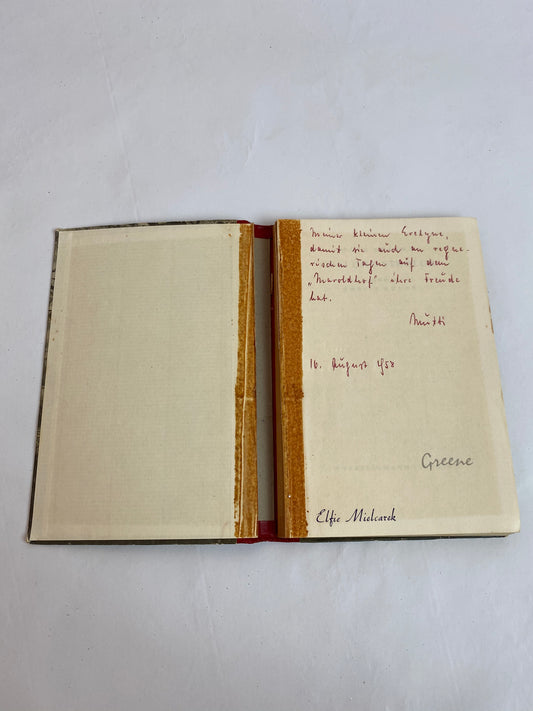 Meiner kleinen Evelyne,
damit sie auch an regne-
rischen Tagen auf dem
„Maroldhof" ihre Freude
hat.
Mutti
16. August 1952
Greene
Elfie Mielcarek